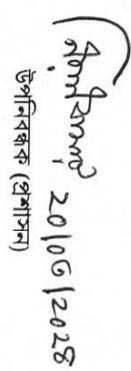 ২০/০৫/২০২৪
উপনিবন্ধক (প্রশাসন)